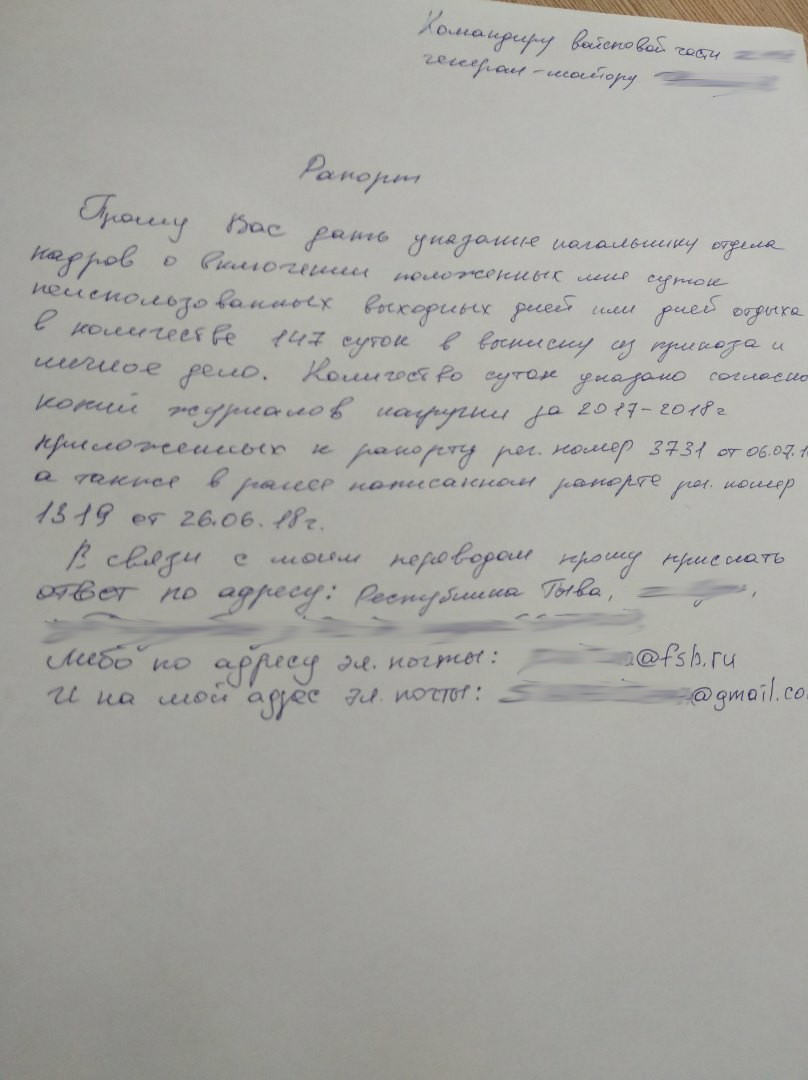 Командиру войсковой части
генерал-майору
Рапорт
Прошу Вас дать указание начальнику отдела
кадров о включении положенных мне суток
неиспользованных выходных дней или дней отдыха
в количестве 147 суток в выписку из приказа и
личное дело. Количество суток указано согласно
копий журналов нагрузки за 2017-2018г
приложенных к рапорту рег. номер 3731 от 06.07.1
а также в ранее написанном рапорте рег. номер
1319 от 26.06.18г.
В связи с моим переводом прошу прислать
ответ по адресу: Республика Тыва,
Либо по адресу эл. почты: @fsb.ru
И на мой адрес эл. почты: @gmail.co